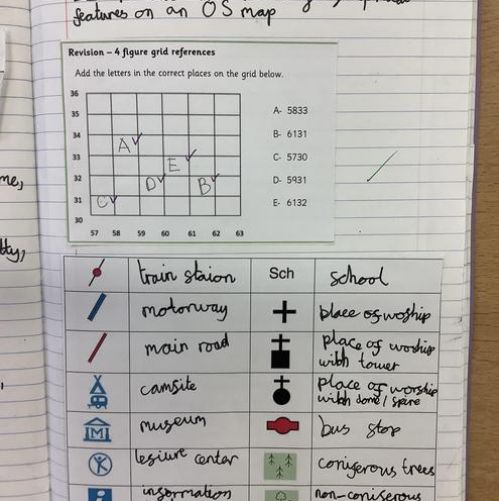 features on an OS map
Revision – 4 figure grid references
Add the letters in the correct places on the grid below.
36
35
34
33
32
31
30
57 58 59 60 61 62 63
A
E
D
B
C
A- 5833
B- 6131
C- 5730
D- 5931
E- 6132
me,
tty,
train staion
Sch
school
motorway
place of woship
main road
place of worship
with tower
campsite
place of worship
with dome / spire
museum
bus stop
lesiure center
coniferous trees
i
information
non-coniferous